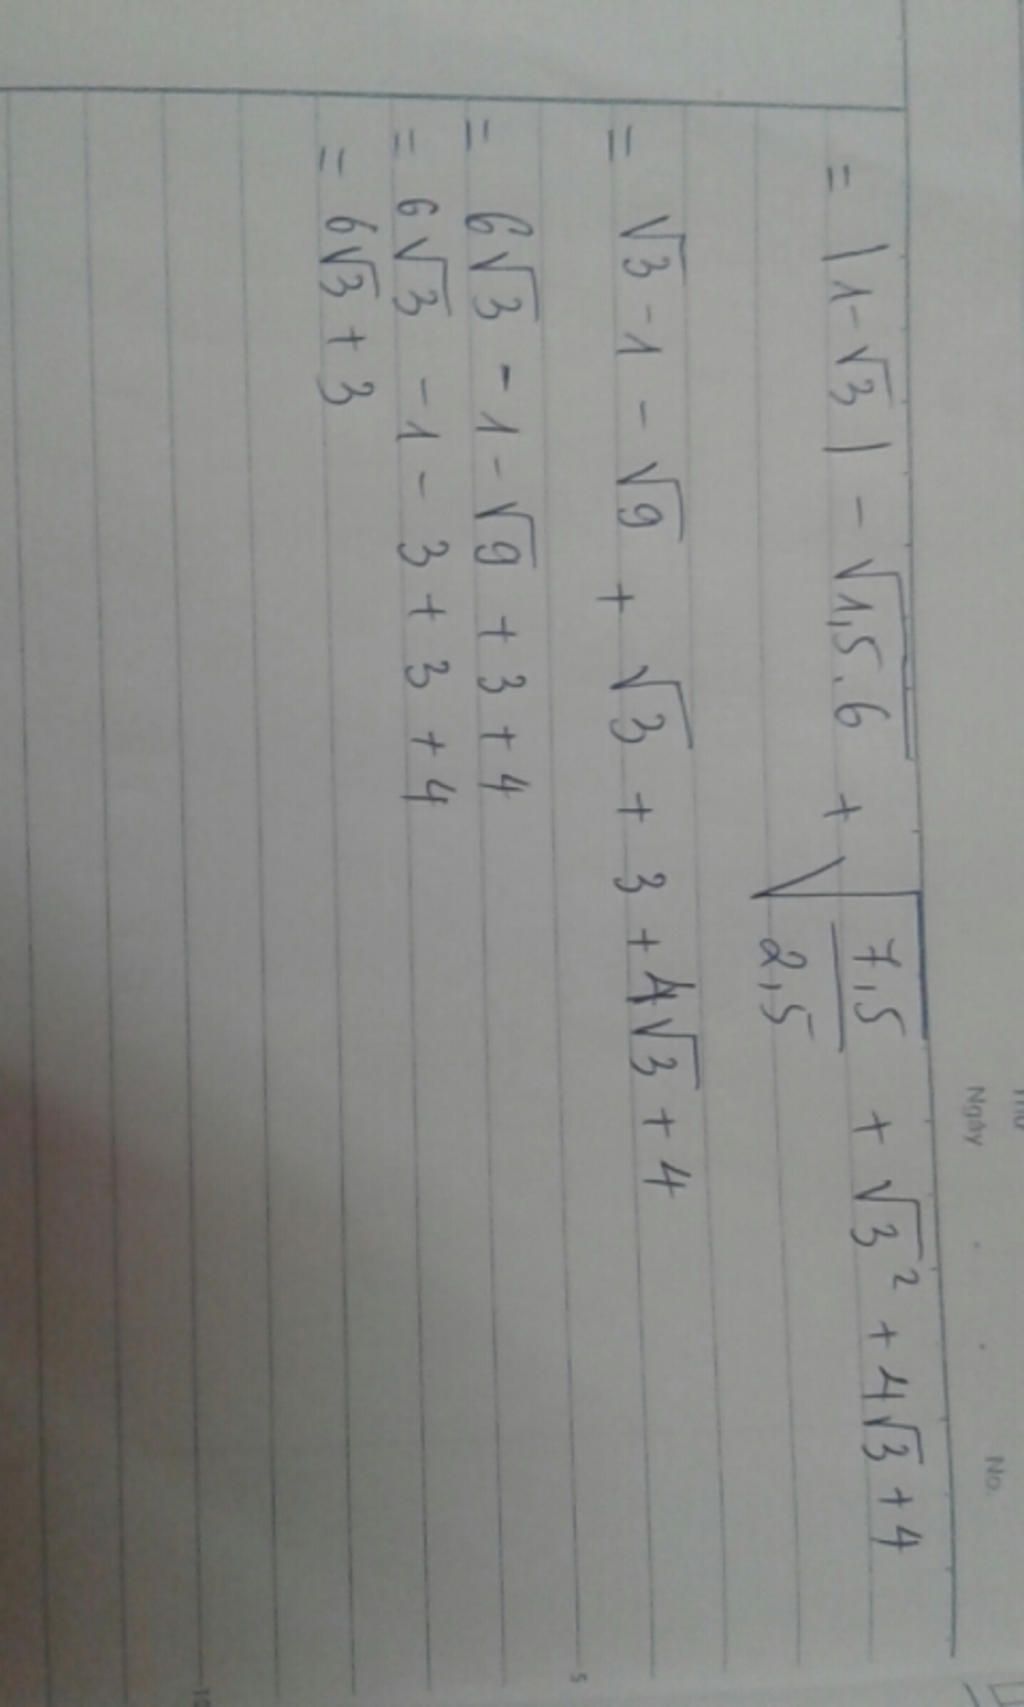 Ngày No.
= |1-√3| - √1,5.6 + √7,5/2,5 + √3² + 4√3 + 4
= √3 - 1 - √9 + √3 + 3 + 4√3 + 4
5
= 6√3 - 1 - √9 + 3 + 4
= 6√3 - 1 - 3 + 3 + 4
= 6√3 + 3
10